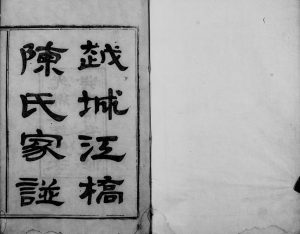 越城江橋
陳氏家譜